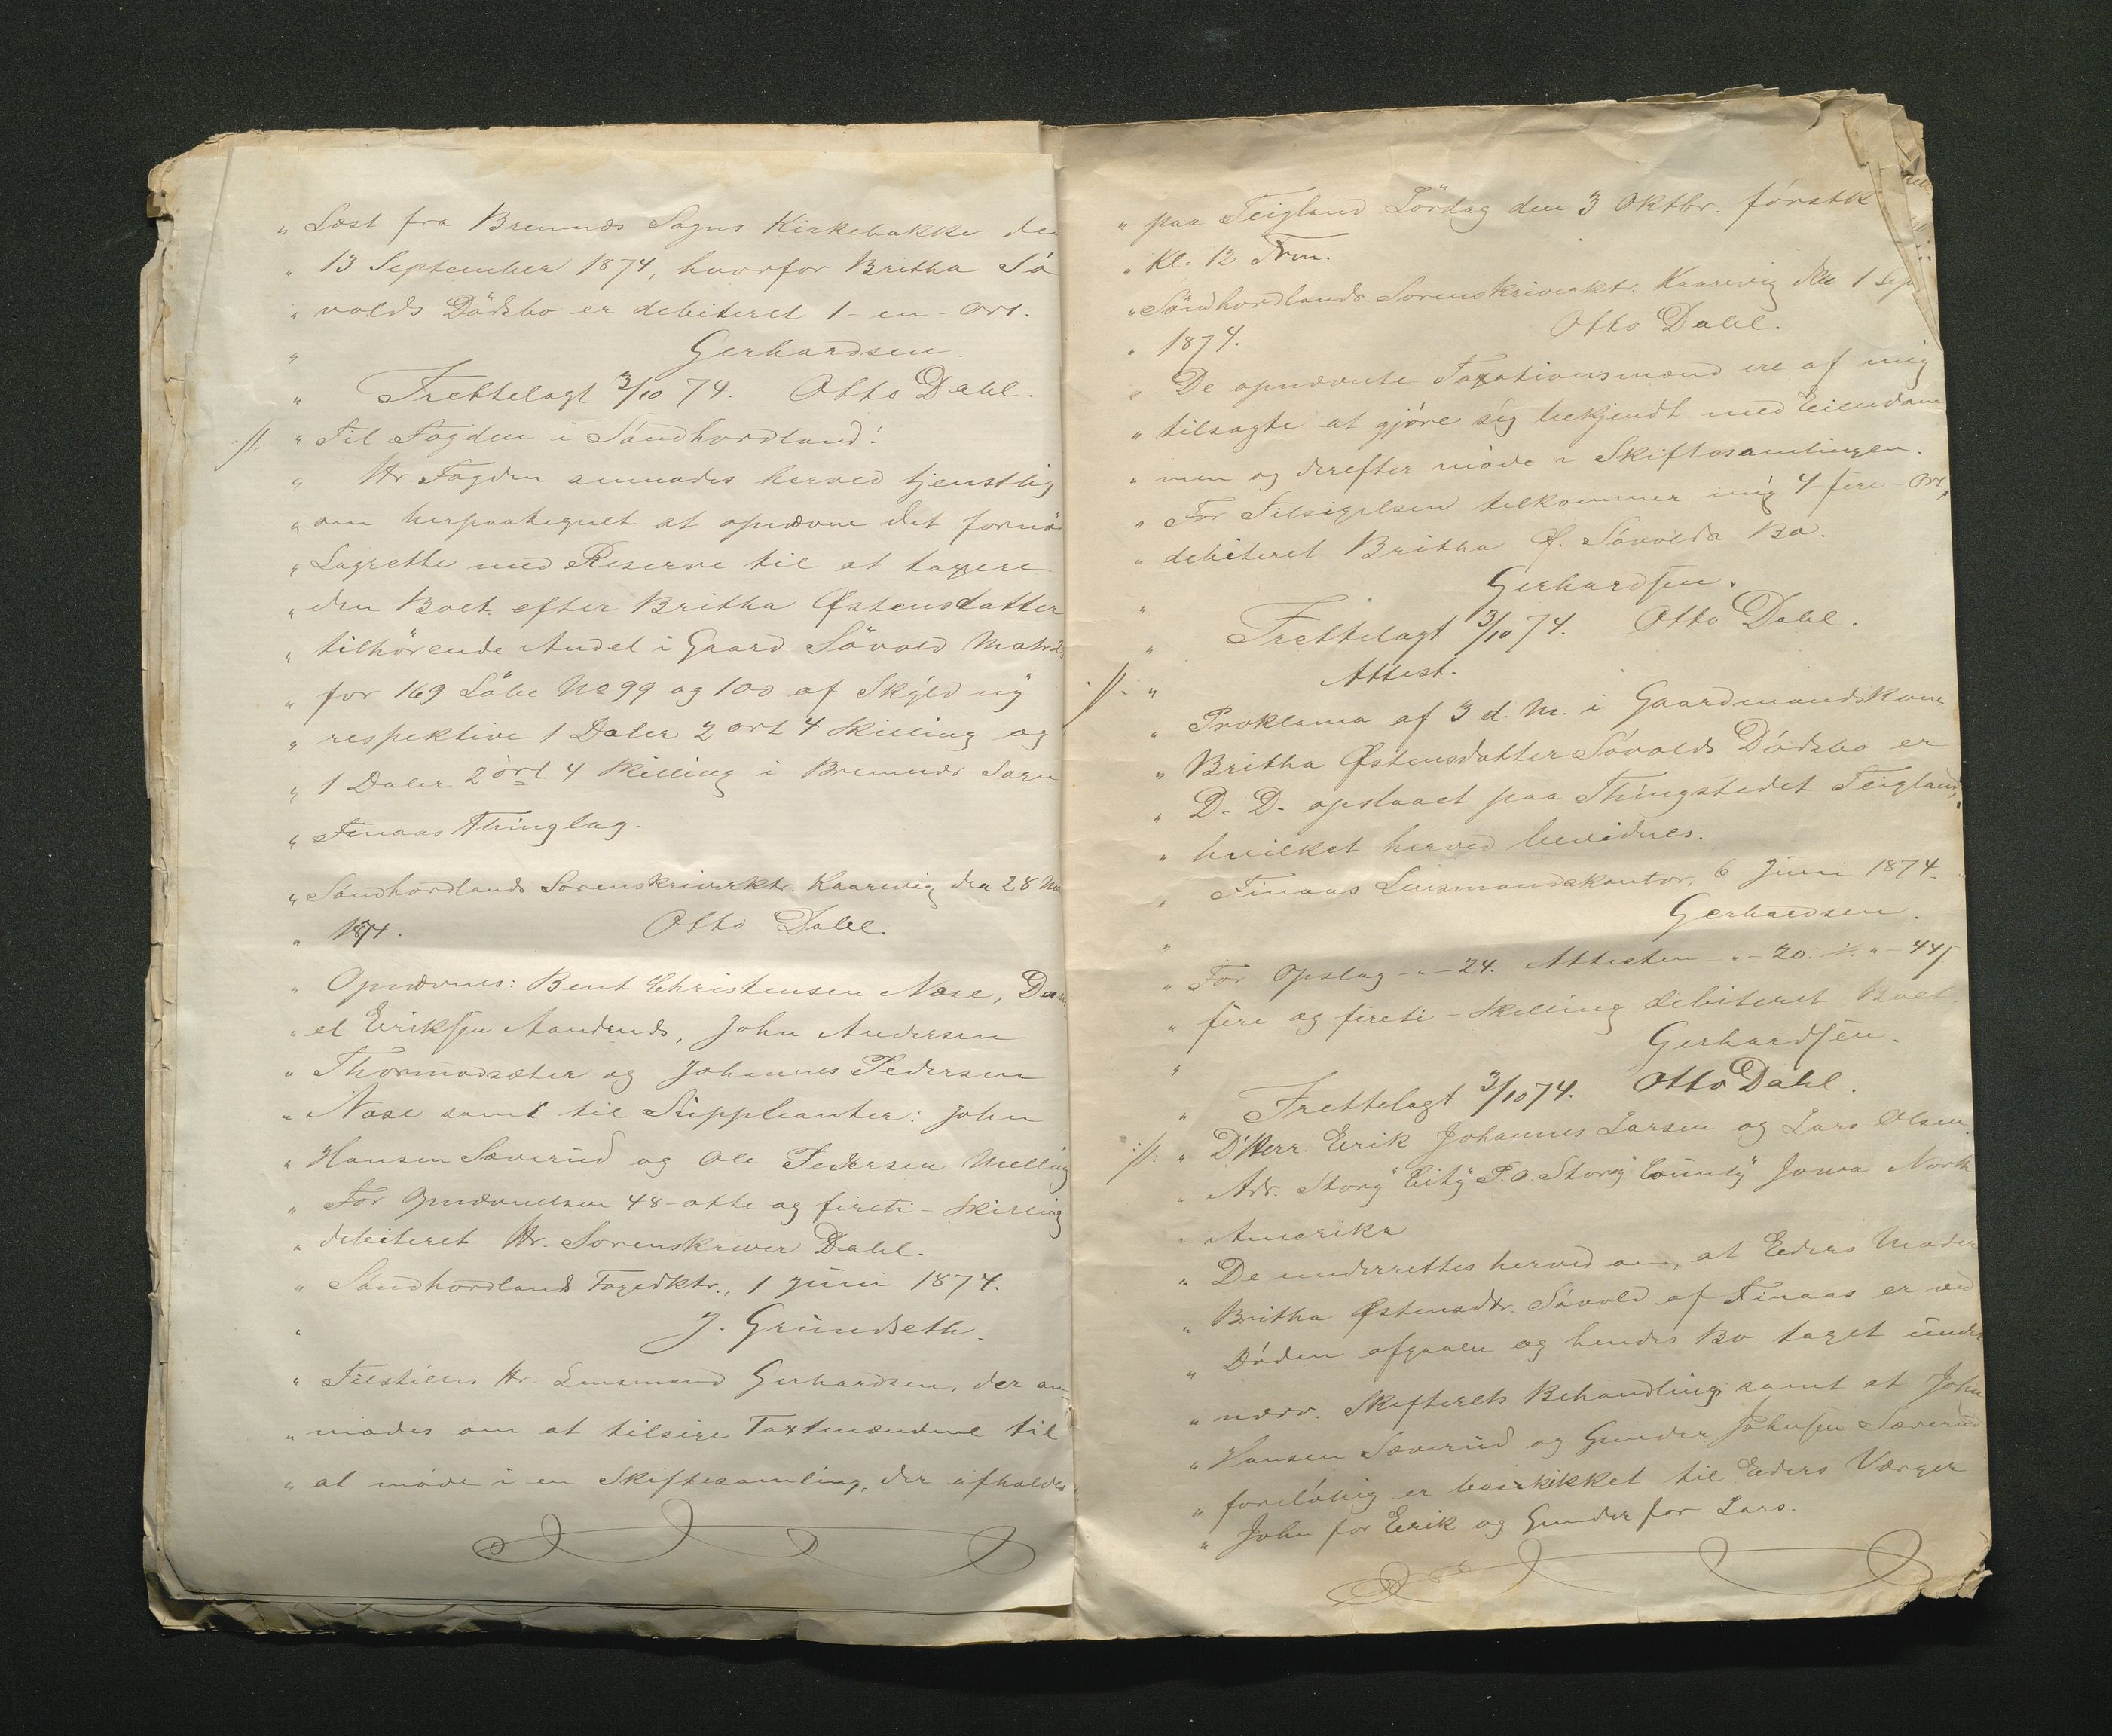 „ Læst fra Bremnæs Sogns Kirkebakke den
„ 13 September 1874, hvorfor Britha Sö
„ volds Dödsbo er debiteret 1 - en - Ort.
„ Gerhardsen.
„ Frettelagt 3/10 74. Otto Dahl.
./. „ Til Fogden i Söndhordland!
„ Hr Fogden anmodes herved tjenstlig
„ om herpaategnet at opnævne det fornö
„ Lagrette med Reserve til at taxere
„ den Boet efter Britha Østensdatter
„ tilhörende Andel i Gaard Sövold Matr
„ for 169 Löbe No 99 og 100 af Skyld ny
„ respektive 1 Daler 2 ort 4 Skilling og
„ 1 Daler 2 ort 4 Skilling i Bremnæs Sogn
„ Finaas Thinglag.
„ Söndhordlands Sorenskriverktr. Kaarevig den 28 Ma
„ 1874. Otto Dahl.
„ Opnævnes: Bent Christensen Nose, Da
„ el Eriksen Aandends, John Andersen
„ Thormodsæter og Johannes Pedersen
„ Nose samt til Suppleanter: John
„ Hansen Sæverud og Ole Pedersen Melling
„ For Opnævnelsen 48 - otte og fireti - Skilling
„ debiteret Hr. Sorenskriver Dahl.
„ Söndhordlands Fogedktr., 1 Juni 1874.
„ J. Grundseth.
„ Tilstilles Hr. Lensmand Gerhardsen, der an
„ modes om at tilsige Taxtmændene til
„ at möde i en Skiftesamling, der afholdes
„ paa Teigland Lördag den 3 Oktbr. förstk
„ Kl. 12 Frm.
„ Söndhordlands Sorenskriverktr. Kaarevig den 1 Sep
„ 1874. Otto Dahl.
„ De opnævnte Taxationsmænd ere af mig
„ tilsagte at gjöre sig bekjendt med Eiendom
„ men og derefter möde i Skiftesamlingen.
„ For Tilsigelsen tilkommer mig 4 - fire - Ort,
„ debiteret Britha Ø. Sövolds Bo.
„ Gerhardsen.
„ Frettelagt 3/10 74. Otto Dahl.
./. „ Attest.
„ Proklama af 3 d. M. i Gaardmandskone
„ Britha Østensdatter Sövolds Dödsbo er
„ D. D. opslaaet paa Thingstedet Teigland,
„ hvilket herved bevidnes.
„ Finaas Lensmandskontor, 6 Juni 1874.
„ Gerhardsen.
„ For Opslag - „ - 24. Attesten - „ - 20. ./. „ - 44
„ fire og fireti - Skilling debiteret Boet.
„ Gerhardsen.
„ Frettelagt 3/10 74. Otto Dahl.
./. „ D'Herr. Erik Johannes Larsen og Lars Olsen.
„ Adr. Story City P.O. Story County Jowa North
„ Amerika
„ De underrettes herved om, at Eders Moder
„ Britha Østensdtr. Sövold af Finaas er ved
„ Döden afgaaen og hendes Bo taget under
„ nærv. Skifterets Behandling samt at John
„ Hansen Sæverud og Gunder Johnsen Sæverud
„ forelöbig er beskikket til Eders Værger
„ John for Erik og Gunder for Lars.